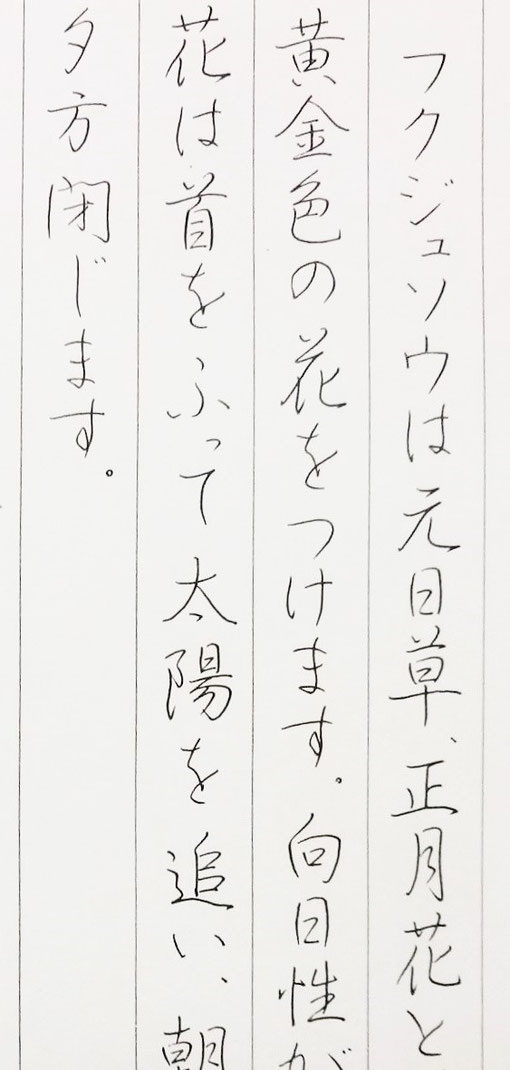 フクジュソウは元日草、正月花と
黄金色の花をつけます。向日性が
花は首をふって太陽を追い、朝
夕方閉じます。